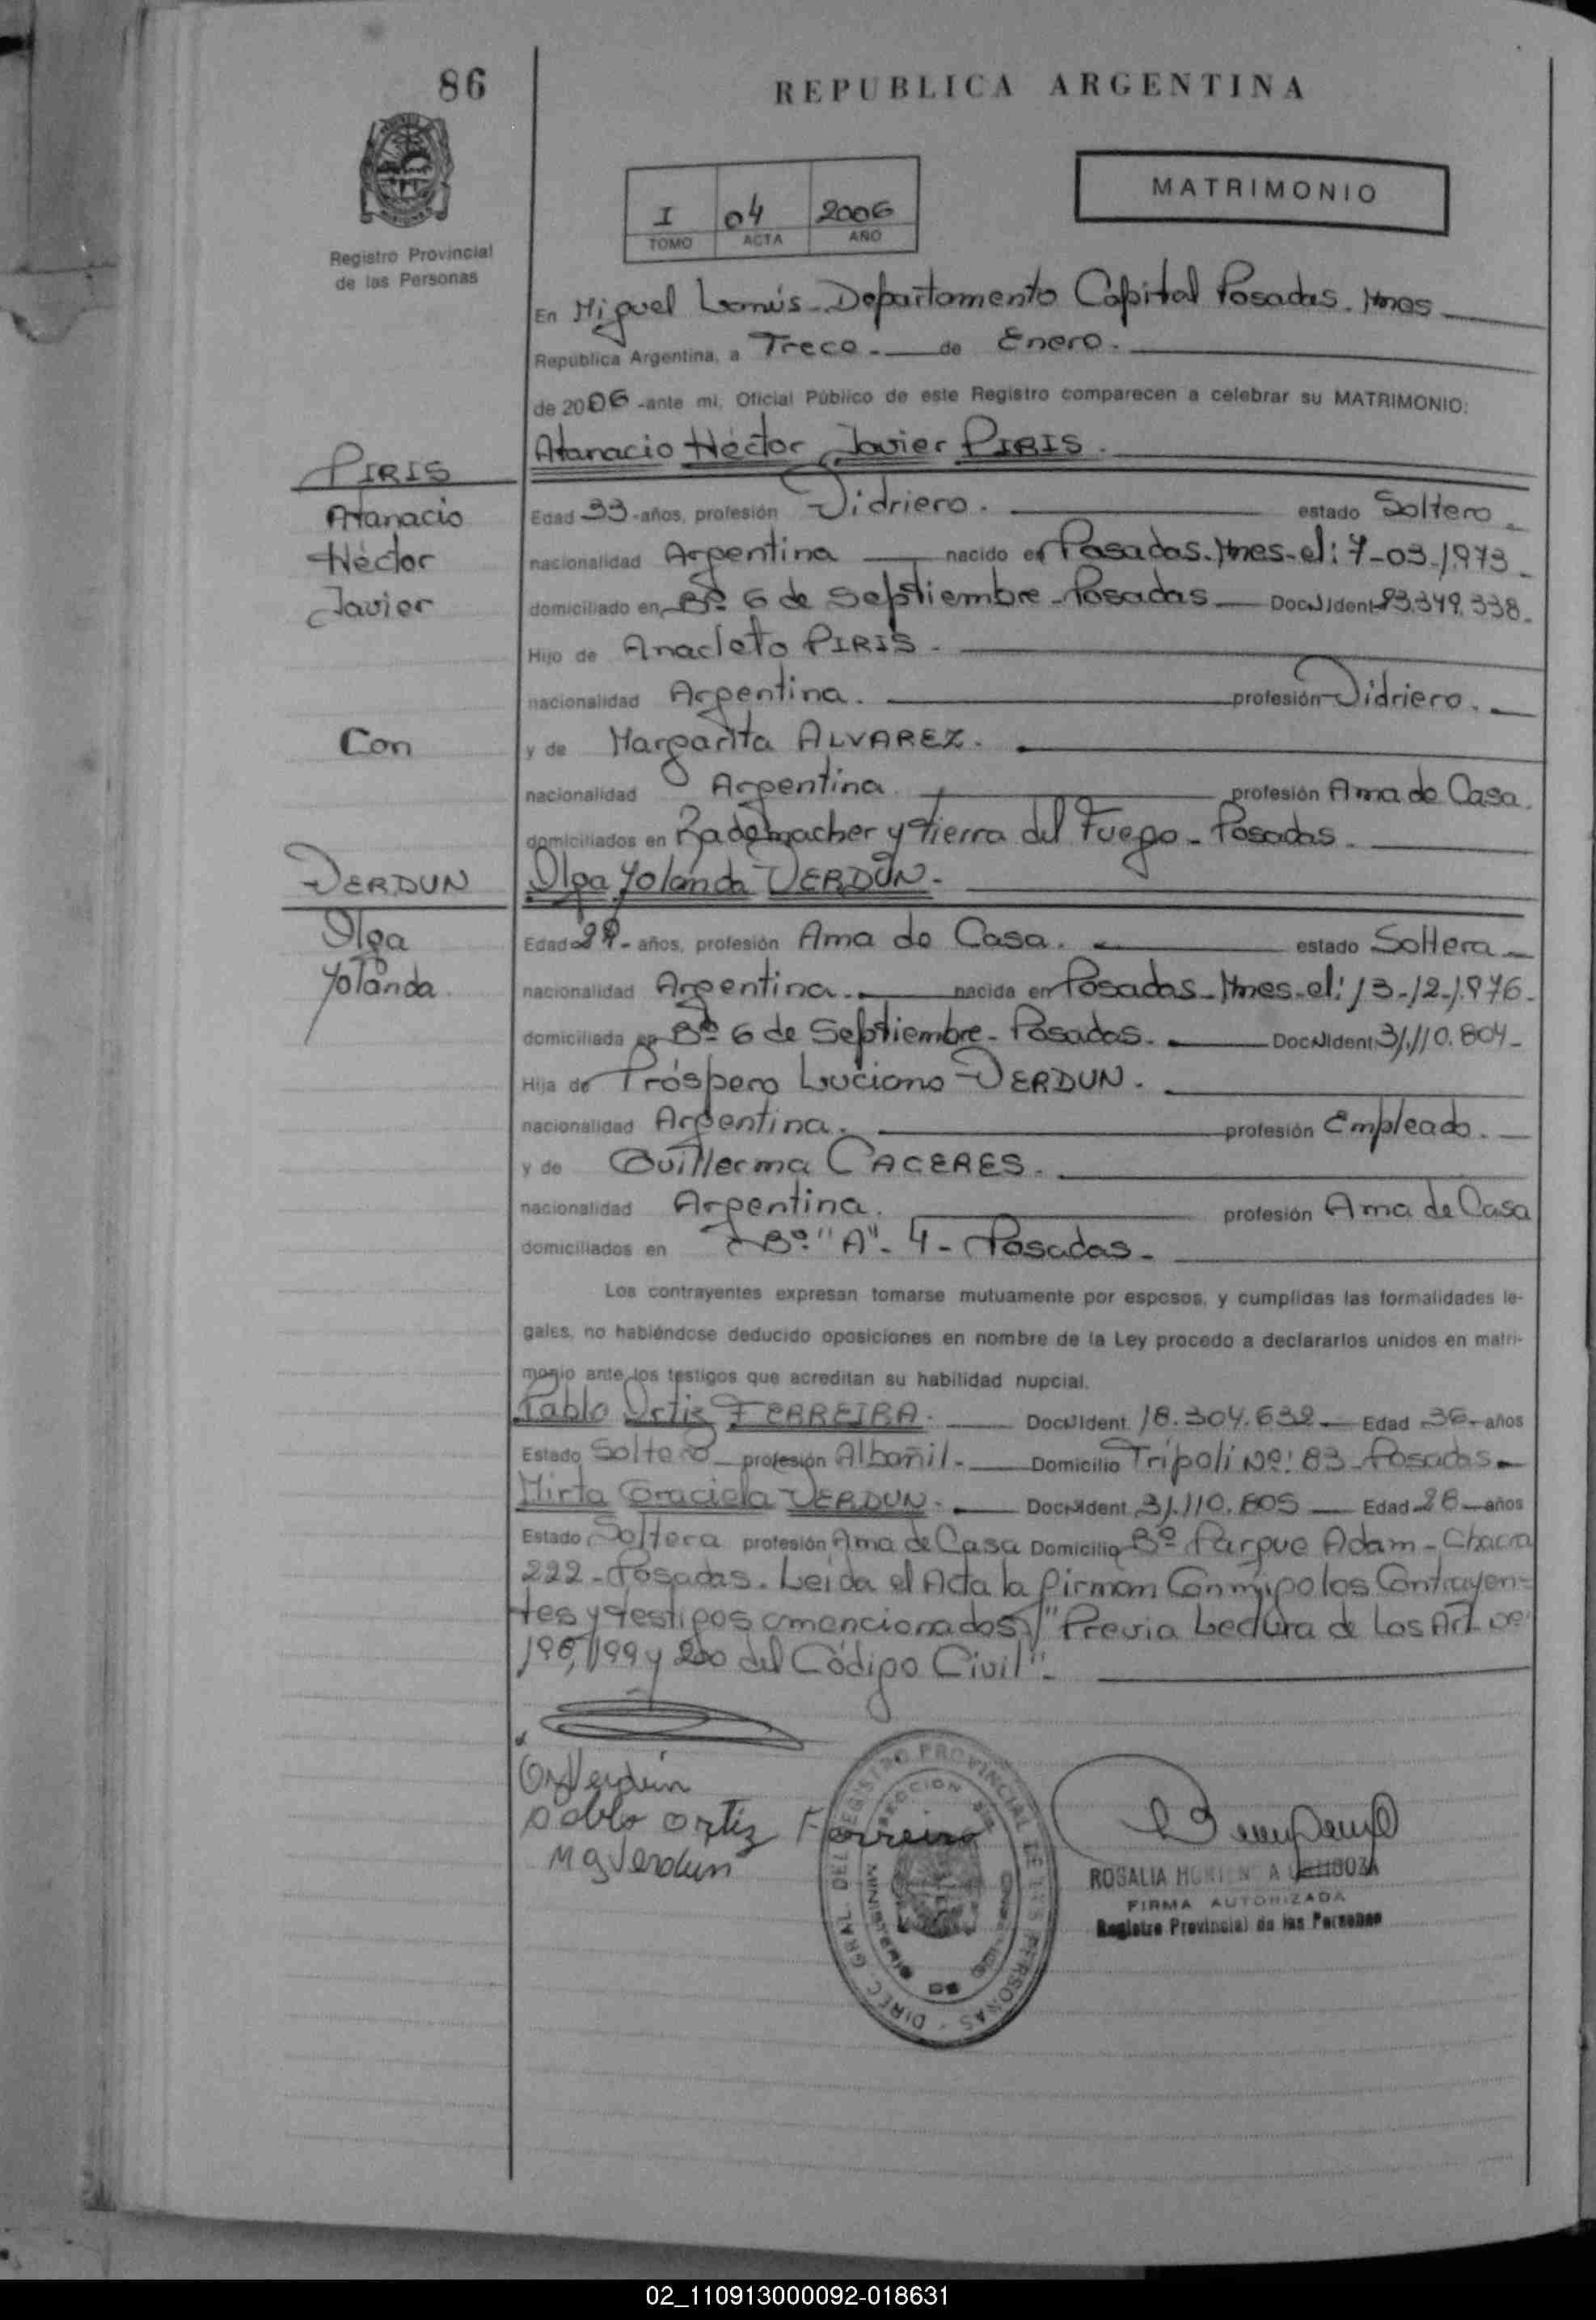 86
REPUBLICA ARGENTINA
MATRIMONIO
I 04 2006
TOMO ACTA AÑO
Registro Provincial
de las Personas
En Miguel Lanús - Departamento Capital Posadas. Mnes
República Argentina, a Trece - de Enero.
de 2006 - ante mi, Oficial Público de este Registro comparecen a celebrar su MATRIMONIO:
Atanacio Héctor Javier PIRIS.
PIRIS
Atanacio
Héctor
Javier
Edad 33 - años, profesión Vidriero. estado Soltero -
nacionalidad Argentina nacido en Posadas. Mnes - el: 7-03-1.973 -
domiciliado en Bº 6 de Septiembre - Posadas Doc. Ident. 23.349.338 -
Hijo de Anacleto PIRIS -
nacionalidad Argentina. profesión Vidriero. -
Con
y de Margarita ALVAREZ.
nacionalidad Argentina. profesión Ama de Casa.
domiciliados en Rademacher y Tierra del Fuego - Posadas.
VERDUN
Olga
Yolanda
Olga Yolanda VERDUN -
Edad 29 - años, profesión Ama de Casa. estado Soltera -
nacionalidad Argentina. nacida en Posadas - Mnes - el: 13-12-1.976 -
domiciliada en Bº 6 de Septiembre - Posadas. Doc. Ident. 31.110.804 -
Hija de Próspero Luciano VERDUN.
nacionalidad Argentina. profesión Empleado. -
y de Guillerma CACERES.
nacionalidad Argentina. profesión Ama de Casa
domiciliados en Bº "A" - 4 - Posadas -
Los contrayentes expresan tomarse mutuamente por esposos, y cumplidas las formalidades le-
gales, no habiéndose deducido oposiciones en nombre de la Ley procedo a declararlos unidos en matri-
monio ante los testigos que acreditan su habilidad nupcial.
Pablo Ortiz FERREIRA. Doc. Ident. 18.304.632 - Edad 36 - años
Estado Soltero - profesión Albañil - Domicilio Trípoli Nº: 83 - Posadas -
Mirta Graciela VERDUN - Doc. Ident. 31.110.805 - Edad 28 - años
Estado Soltera profesión Ama de Casa Domicilio Bº Parque Adam - Chacra
222 - Posadas. Leída el Acta la firman Conmigo los Contrayen=
tes y testigos mencionados "Previa Lectura de Los Art.
198, 199 y 200 del Código Civil" -
OYVerdún
Pablo Ortiz Ferreira
MGVerdun
DIREC. GRAL. DEL REGISTRO PROVINCIAL DE LAS PERSONAS
ROSALIA
FIRMA AUTORIZADA
Registro Provincial de las Personas
02_110913000092-018631